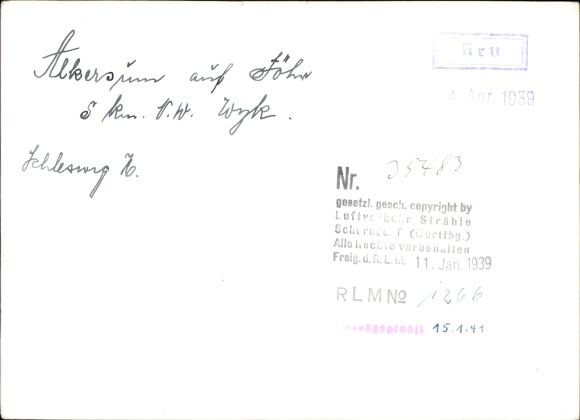 Alkersum auf Föhr
5 km. N.W. Wyk.
Schleswig H.
Neu
4. Apr. 1939
Nr. 35483
gesetzl. gesch. copyright by
Luftverkehr Strähle
Schorndorf (Württbg.)
Alle Rechte vorbehalten
Freig. d. R.L.M. 11. Jan. 1939
RLM No 1266
15.1.41